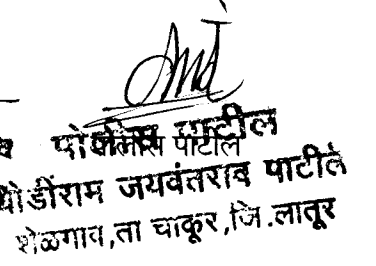 पोलीस पाटील
पोलीस पाटील
धोंडीराम जयवंतराव पाटील
शेळगाव,ता चाकूर,जि.लातूर